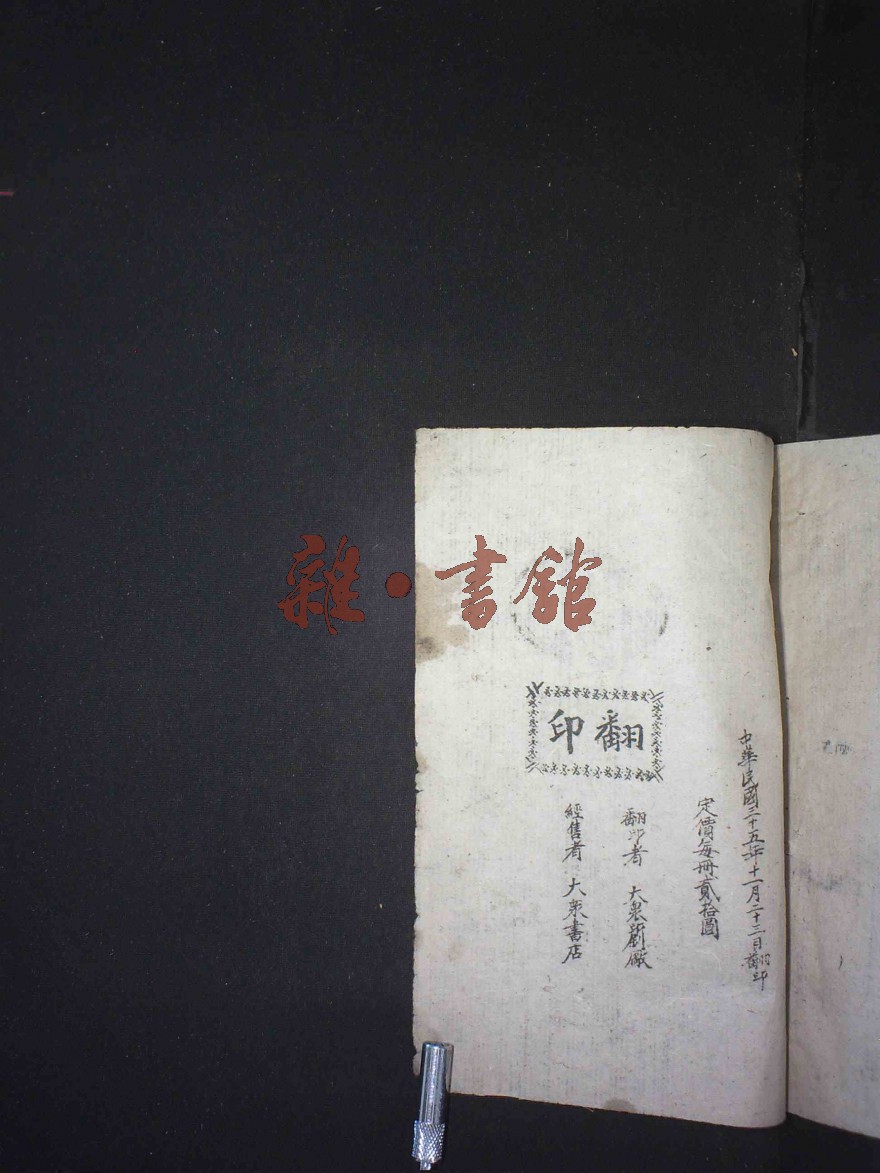 雜·書館
翻印
中華民國三十五年十一月二十三日翻印
定價每冊貳拾圓
翻印者 大衆印刷廠
經售者 大衆書店